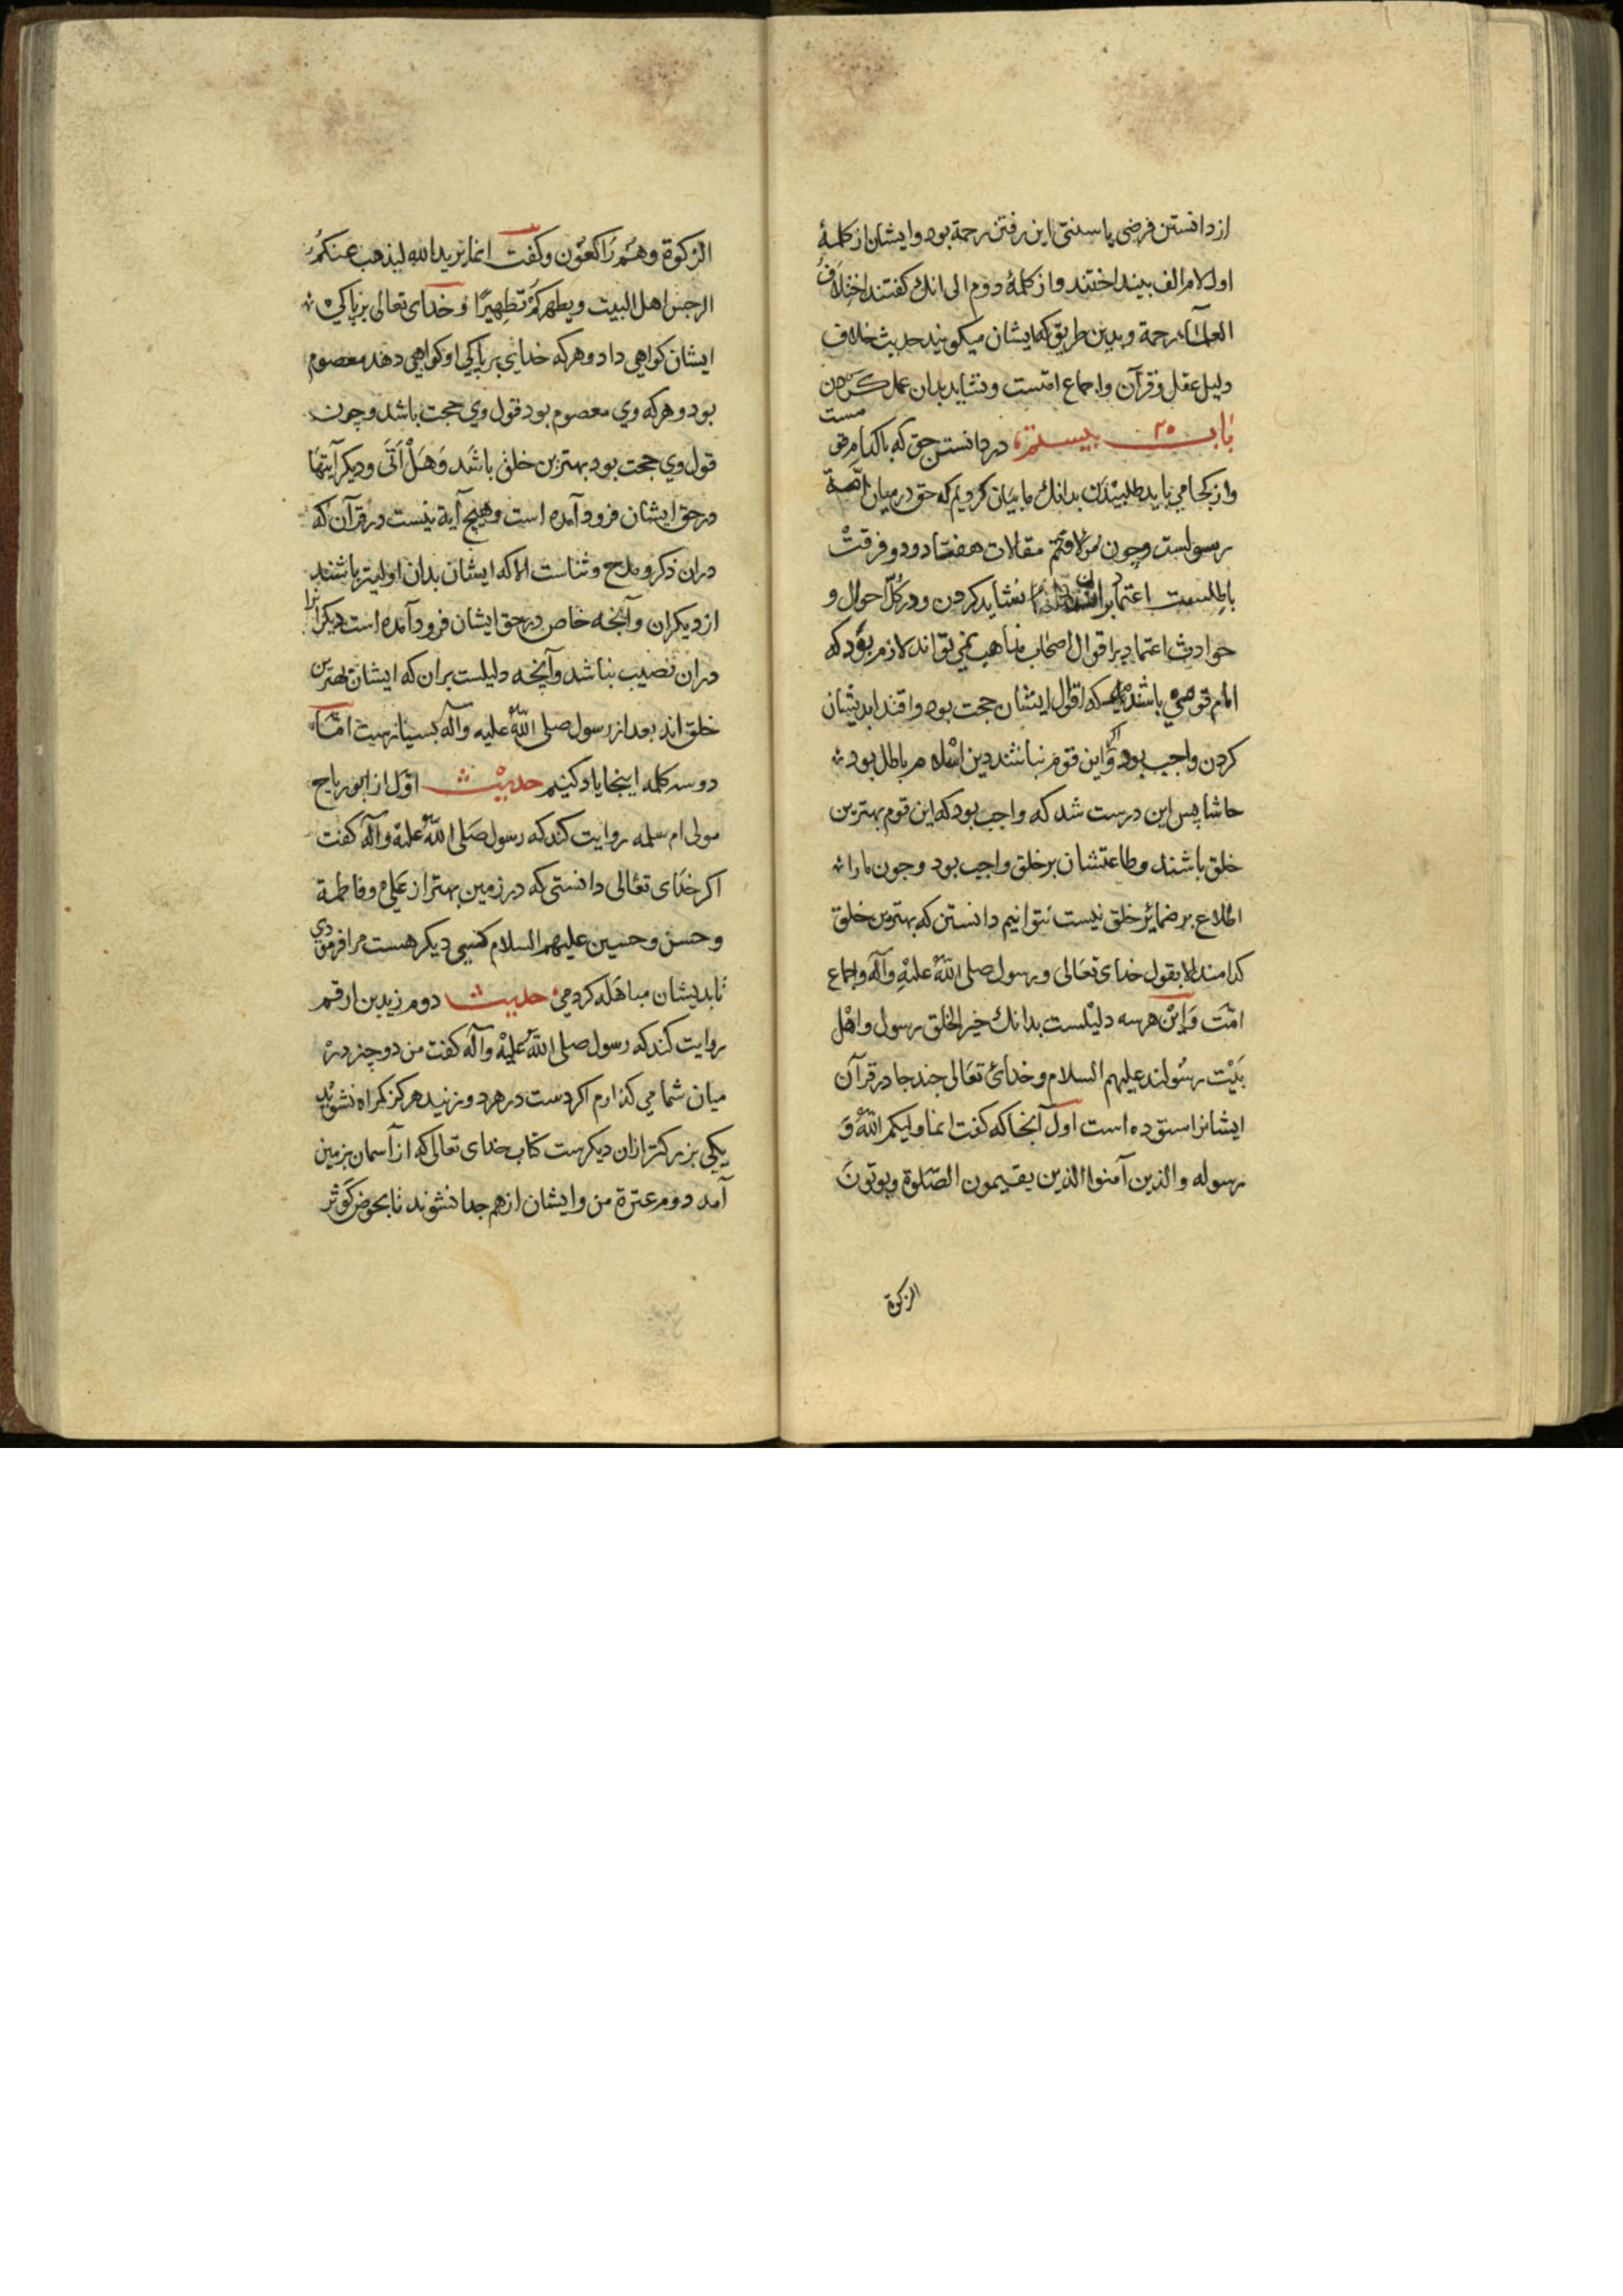 از دانستن فرضی یا سنتی این رفتن رحمة بود و ایشان از کلمهٔ
اول لام الف بینداختند و از کلمهٔ دوم الی انك کفتند اختلاف
العلمآء رحمة و بدین طریق که ایشان میکویند حدیث خلاف
دلیل عقل و قرآن و اجماع امتست و نشاید بدان عمل کردن
باب ٢٥ بیستم در دانستن حق که با کدام قومست
و از کجا می باید طلبیدن بدانك ما بیان کردیم که حق در میان امة
رسولست و چون مقالات هفتاد و دو فرقت
باطلست اعتماد بران نشاید کردن و در کل احوال و
حوادث اعتماد بر اقوال اصحاب مذاهب نمی تواند لازم بود که
امام قومی باشند که اقوال ایشان حجت بود و اقتدا بدیشان
کردن واجب بود و اکر این قوم نباشند دین اسلام باطل بود
حاشا پس این درست شد که واجب بود که این قوم بهترین
خلق باشند و طاعتشان بر خلق واجب بود و چون ما را
اطلاع بر ضمائر خلق نیست نتوانیم دانستن که بهترین خلق
کدامند الا بقول خدای تعالی و رسول صلی الله علیه وآله و اجماع
امت و این هر سه دلیلست بدانك خیر الخلق رسول و اهل
بیت رسولند علیهم السلام و خدای تعالی چند جا در قرآن
ایشانرا ستوده است اول آنجا که کفت انما ولیکم الله و
رسوله والذین آمنوا الذین یقیمون الصلوة ویوتون
الزکوة
الزکوة وهم راکعون و کفت انما یرید الله لیذهب عنکم
الرجس اهل البیت ویطهرکم تطهیرا و خدای تعالی بر پاکی
ایشان کواهی داد و هر که خدای بر پاکی او کواهی دهد معصوم
بود و هر که وی معصوم بود قول وی حجت باشد و چون
قول وی حجت بود بهترین خلق باشد و هل اتی و دیکر آیتها
در حق ایشان فرود آمده است و هیچ آیة نیست در قرآن که
دران ذکر و مدح و ثناست الا که ایشان بدان اولیتر باشند
از دیکران و آنچه خاص در حق ایشان فرود آمده است دیکرانرا
دران نصیب نباشد و آنچه دلیلست بران که ایشان بهترین
خلق اند بعد از رسول صلی الله علیه وآله بسیارست اما
دو سه کلمه اینجا یاد کنیم حدیث اول از ابو رباح
مولی ام سلمه روایت کند که رسول صلی الله علیه وآله کفت
اکر خدای تعالی دانستی که در زمین بهتر از علی و فاطمة
و حسن و حسین علیهم السلام کسی دیکر هست مرا فرمودی
تا بدیشان مباهله کردمی حدیث دوم زید بن ارقم
روایت کند که رسول صلی الله علیه وآله کفت من دو چیز در
میان شما می کذارم اکر دست در هر دو زنید هرکز کمراه نشوید
یکی بزرکتر ازان دیکرست کتاب خدای تعالی که از آسمان بزمین
آمد دوم عترة من و ایشان از هم جدا نشوند تا بحوض کوثر